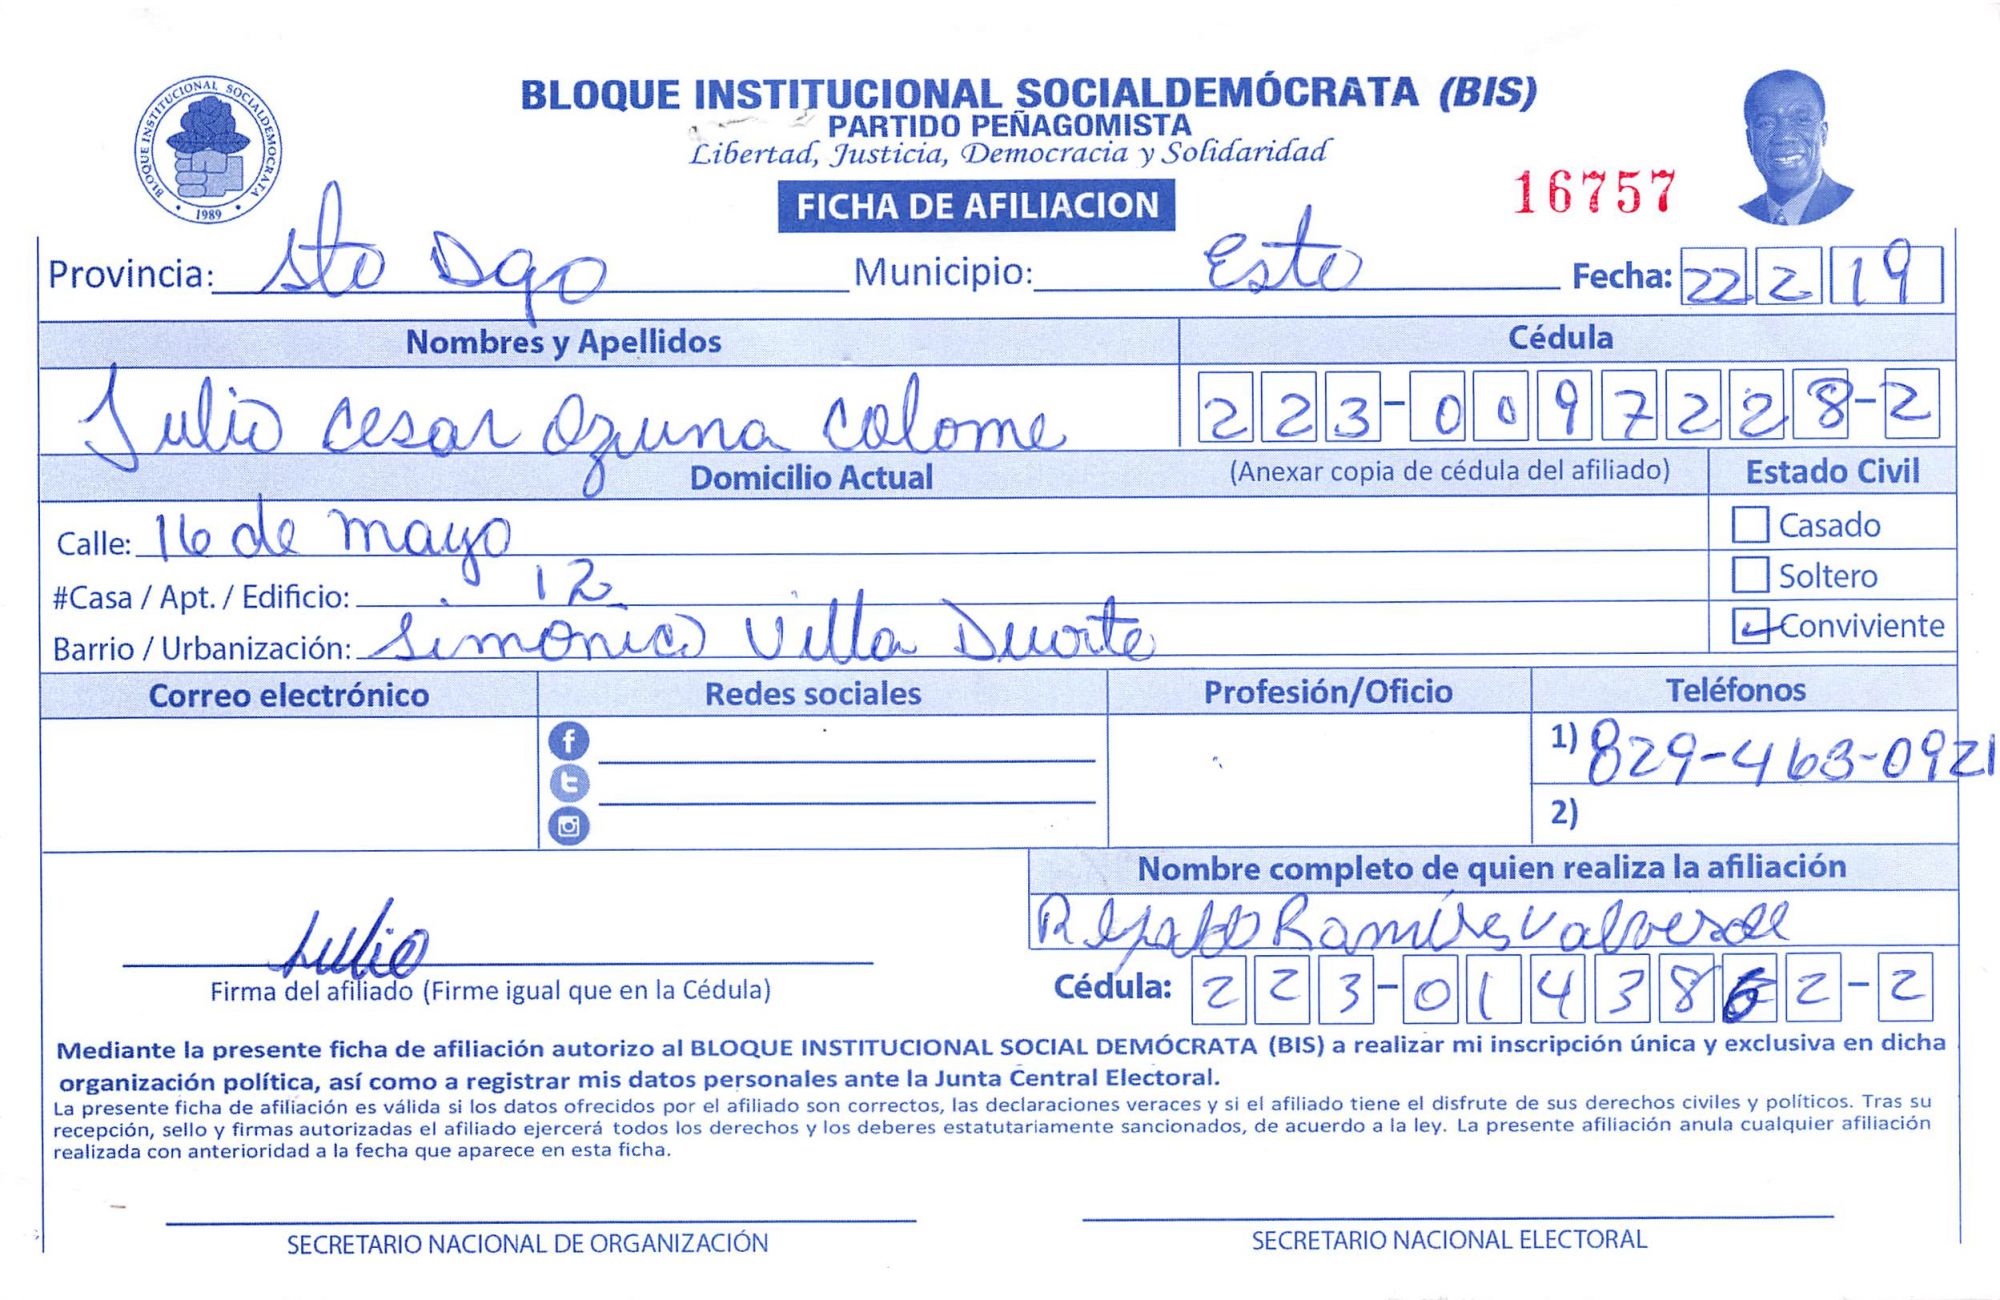 BLOQUE INSTITUCIONAL SOCIALDEMOCRATA
1989
BLOQUE INSTITUCIONAL SOCIALDEMÓCRATA (BIS)
PARTIDO PEÑAGOMISTA
Libertad, Justicia, Democracia y Solidaridad
FICHA DE AFILIACION
16757
Provincia: Sto Dgo Municipio: Este Fecha: 22 2 19
Nombres y Apellidos Cédula
Julio Cesar Ozuna Colome 223-0097228-2
Domicilio Actual (Anexar copia de cédula del afiliado) Estado Civil
Calle: 16 de mayo Casado
#Casa / Apt. / Edificio: 12 Soltero
Barrio / Urbanización: Simonico Villa Duarte Conviviente
Correo electrónico Redes sociales Profesión/Oficio Teléfonos
1) 829-463-0921
2)
Nombre completo de quien realiza la afiliación
Ramires Valverde
Julio
Firma del afiliado (Firme igual que en la Cédula) Cédula: 223-0143862-2
Mediante la presente ficha de afiliación autorizo al BLOQUE INSTITUCIONAL SOCIAL DEMÓCRATA (BIS) a realizar mi inscripción única y exclusiva en dicha
organización política, así como a registrar mis datos personales ante la Junta Central Electoral.
La presente ficha de afiliación es válida si los datos ofrecidos por el afiliado son correctos, las declaraciones veraces y si el afiliado tiene el disfrute de sus derechos civiles y políticos. Tras su
recepción, sello y firmas autorizadas el afiliado ejercerá todos los derechos y los deberes estatutariamente sancionados, de acuerdo a la ley. La presente afiliación anula cualquier afiliación
realizada con anterioridad a la fecha que aparece en esta ficha.
SECRETARIO NACIONAL DE ORGANIZACIÓN SECRETARIO NACIONAL ELECTORAL